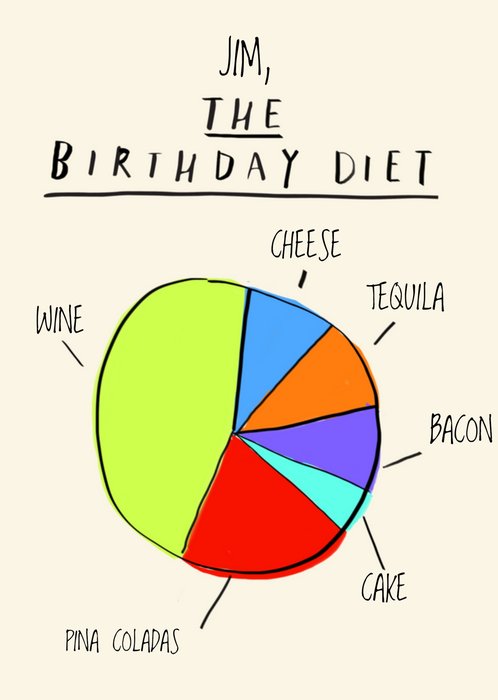 JIM,
THE
BIRTHDAY DIET
CHEESE
TEQUILA
WINE
BACON
CAKE
PINA COLADAS